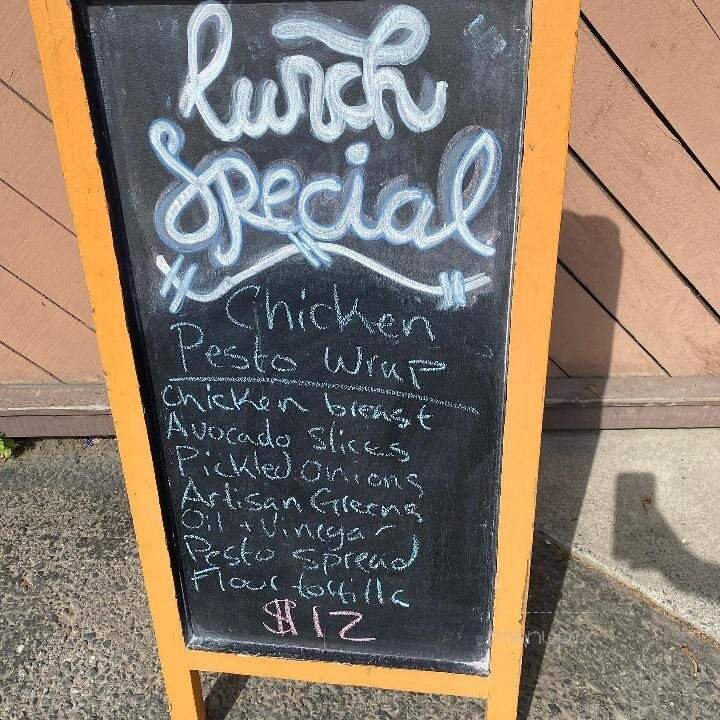 Lunch
Special
Chicken
Pesto Wrap
Chicken breast
Avocado Slices
Pickled Onions
Artisan Greens
Oil + Vinegar
Pesto Spread
Flour tortilla
$12